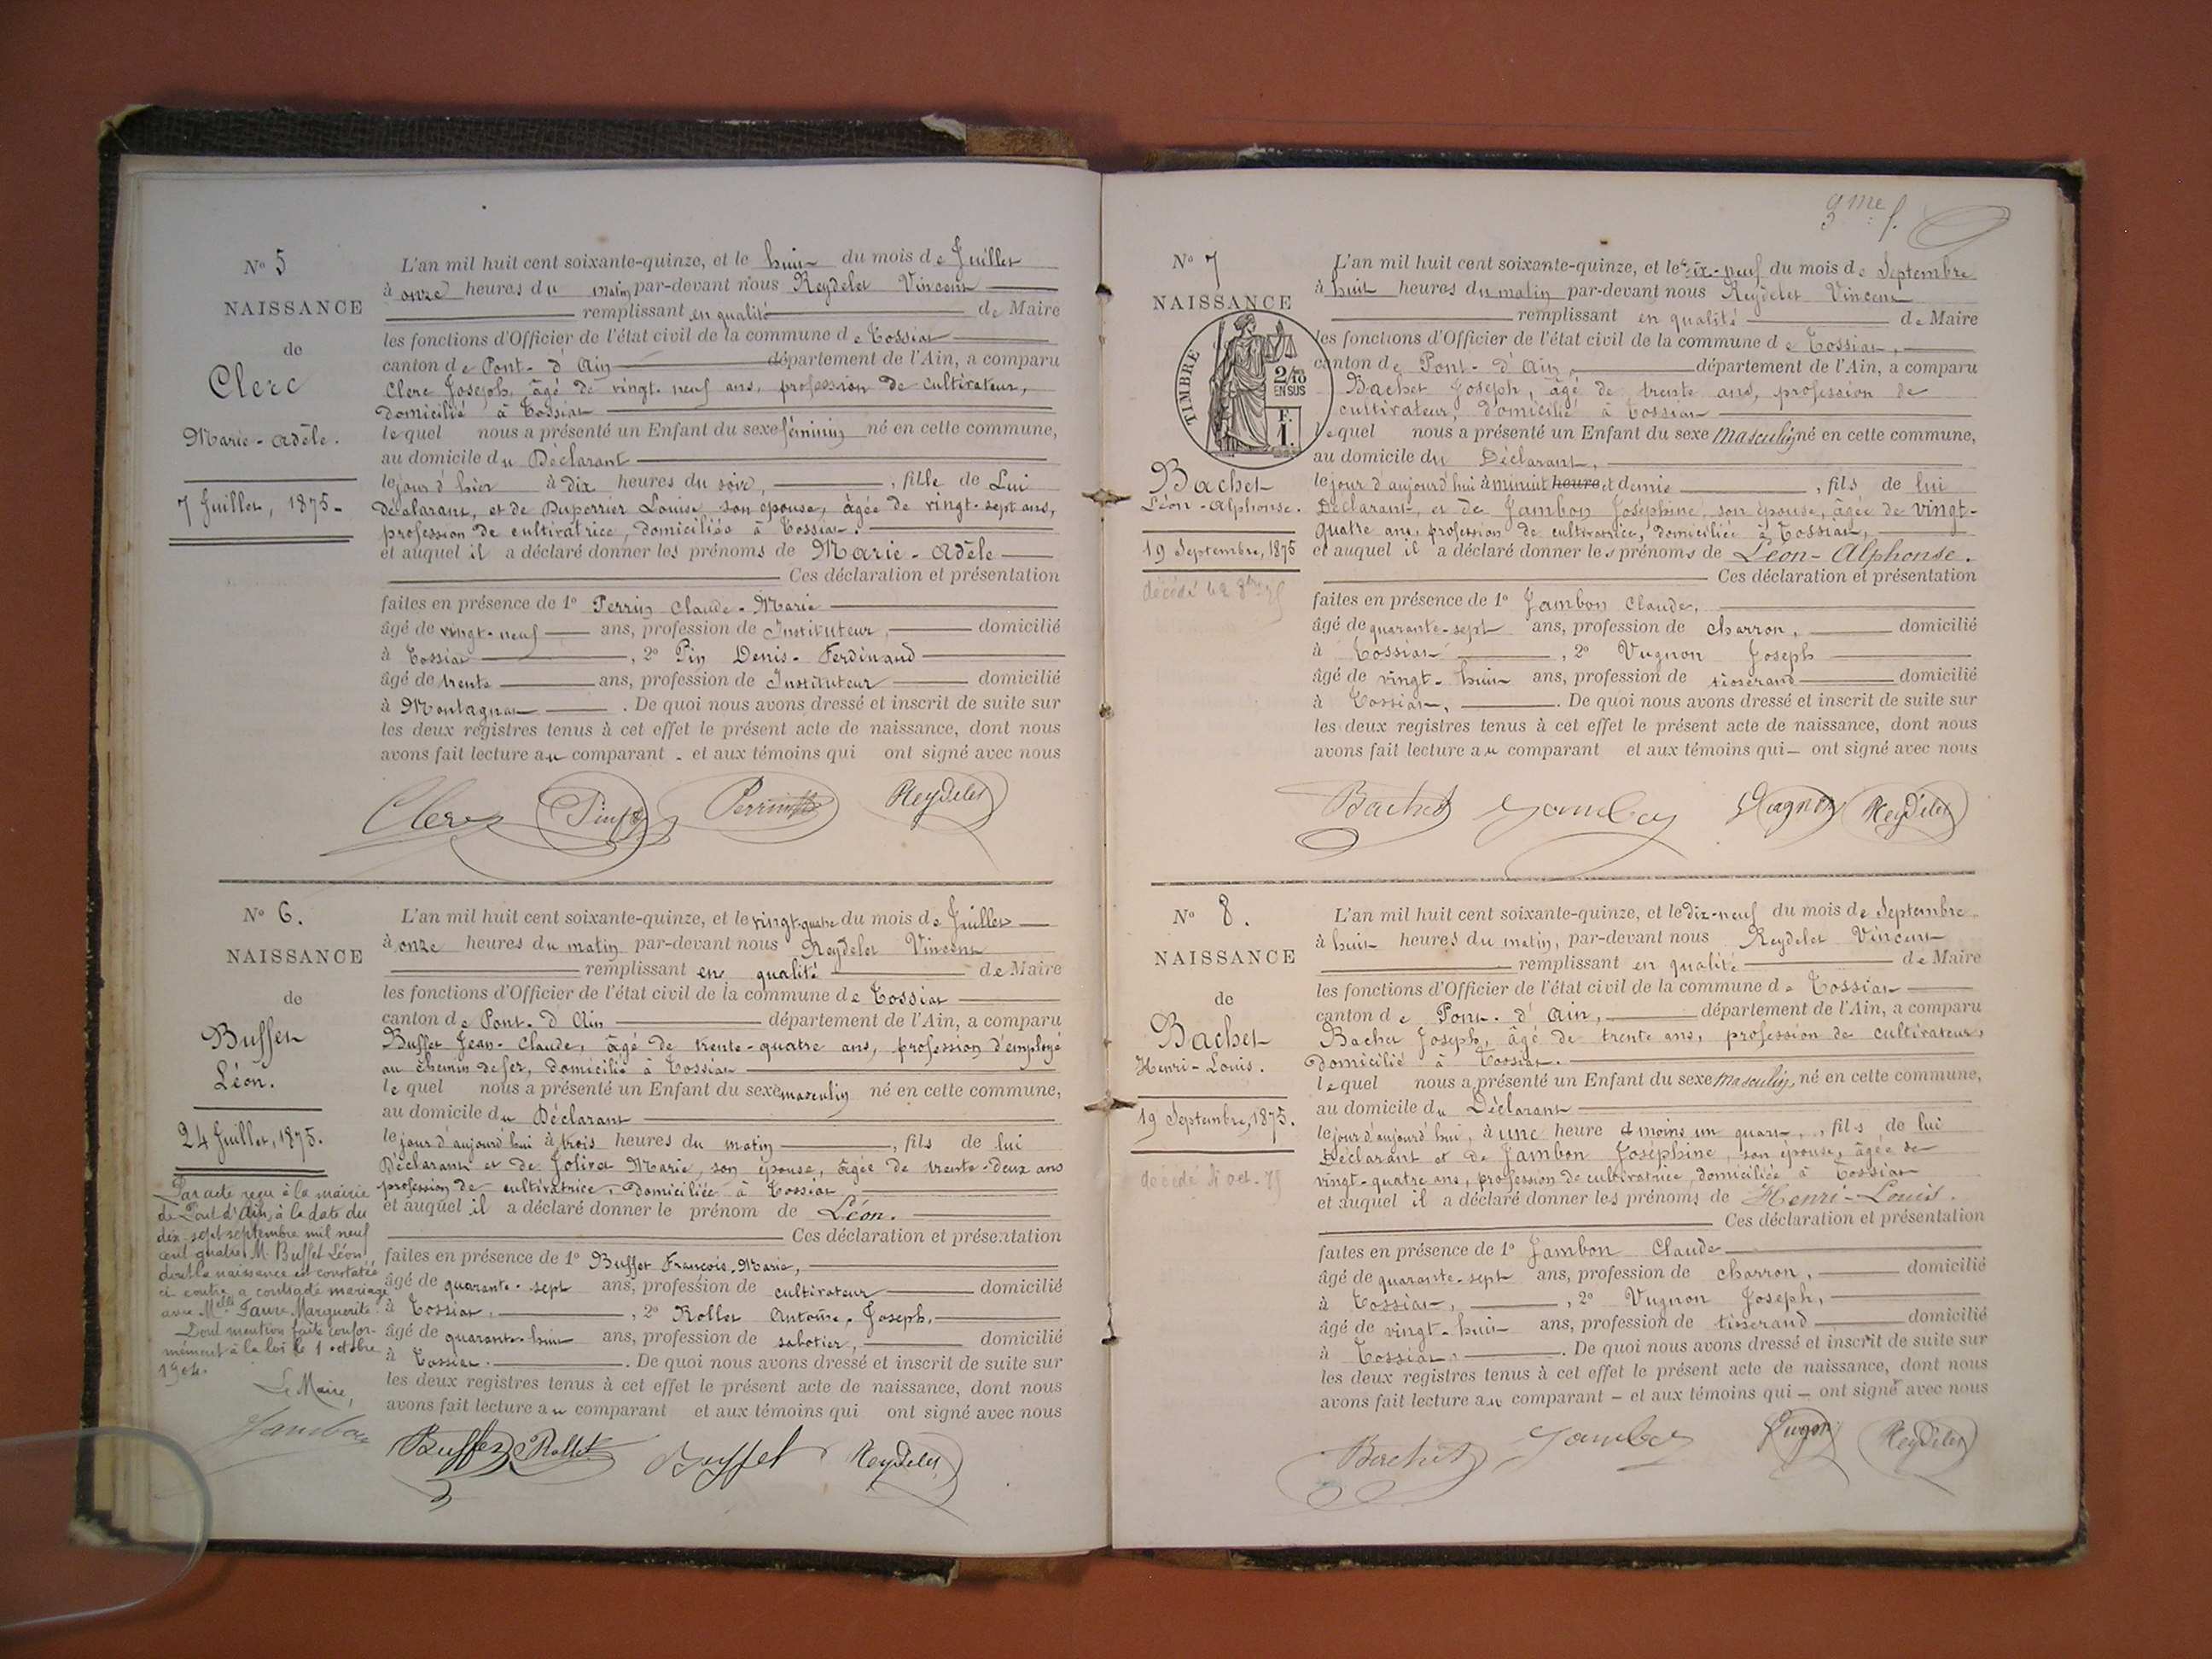 N° 5
NAISSANCE
de
Clerc
Marie-Adèle.
7 Juillet, 1875-
L'an mil huit cent soixante-quinze, et le huit du mois de Juillet
à onze heures du matin par-devant nous Reydelet Vincent
remplissant en qualité de Maire
les fonctions d'Officier de l'état civil de la commune de Tossiat
canton de Pont-d'Ain département de l'Ain, a comparu
Clerc Joseph, âgé de vingt-neuf ans, profession de cultivateur,
domicilié à Tossiat
lequel nous a présenté un Enfant du sexe féminin né en cette commune,
au domicile du Déclarant
le jour d'hier à dix heures du soir, , fille de Lui
Déclarant, et de Duperrier Louise son épouse, âgée de vingt-sept ans,
profession de cultivatrice, domiciliée à Tossiat.
et auquel il a déclaré donner les prénoms de Marie-Adèle
Ces déclaration et présentation
faites en présence de 1° Perrin Claude-Marie
âgé de vingt-neuf ans, profession de Instituteur, domicilié
à Tossiat , 2° Pin Denis-Ferdinand
âgé de trente ans, profession de Instituteur domicilié
à Montagnat . De quoi nous avons dressé et inscrit de suite sur
les deux registres tenus à cet effet le présent acte de naissance, dont nous
avons fait lecture au comparant - et aux témoins qui ont signé avec nous
Clerc Pin Perrin Reydelet
N° 6.
NAISSANCE
de
Buffet
Léon.
24 Juillet, 1875.
Par acte reçu à la mairie
de Pont d'Ain, à la date du
dix-sept septembre mil neuf
cent quatre, M. Buffet Léon
dont la naissance est constatée
ci contre, a contracté mariage
avec Melle Faure Marguerite
Dont mention faite confor-
mément à la loi le 1 octobre
1904.
Le Maire,
Jambon
L'an mil huit cent soixante-quinze, et le vingt-quatre du mois de Juillet
à onze heures du matin par-devant nous Reydelet Vincent
remplissant en qualité de Maire
les fonctions d'Officier de l'état civil de la commune de Tossiat
canton de Pont-d'Ain département de l'Ain, a comparu
Buffet Jean-Claude, âgé de trente-quatre ans, profession d'employé
au chemin de fer, domicilié à Tossiat
lequel nous a présenté un Enfant du sexe masculin né en cette commune,
au domicile du Déclarant
le jour d'aujourd'hui à trois heures du matin , fils de lui
Déclarant et de Jolivet Marie, son épouse, âgée de trente-deux ans
profession de cultivatrice, domiciliée à Tossiat
et auquel il a déclaré donner le prénom de Léon.
Ces déclaration et présentation
faites en présence de 1° Buffet François-Marie,
âgé de quarante-sept ans, profession de cultivateur domicilié
à Tossiat, , 2° Rollet Antoine, Joseph,
âgé de quarante-huit ans, profession de sabotier, domicilié
à Tossiat. . De quoi nous avons dressé et inscrit de suite sur
les deux registres tenus à cet effet le présent acte de naissance, dont nous
avons fait lecture au comparant et aux témoins qui ont signé avec nous
Buffet Rollet Buffet Reydelet
N° 7
NAISSANCE
TIMBRE
2/10
EN SUS
F.
1.
Bachet
Léon-Alphonse.
19 Septembre, 1875
décédé le 2 8bre 75
L'an mil huit cent soixante-quinze, et le dix-neuf du mois de Septembre
à huit heures du matin par-devant nous Reydelet Vincent
remplissant en qualité de Maire
les fonctions d'Officier de l'état civil de la commune de Tossiat,
canton de Pont-d'Ain, département de l'Ain, a comparu
Bachet Joseph, âgé de trente ans, profession de
cultivateur, domicilié à Tossiat
lequel nous a présenté un Enfant du sexe masculin né en cette commune,
au domicile du Déclarant,
le jour d'aujourd'hui à minuit heure et demie , fils de lui
Déclarant, et de Jambon Joséphine, son épouse, âgée de vingt-
quatre ans, profession de cultivatrice, domiciliée à Tossiat,
et auquel il a déclaré donner les prénoms de Léon-Alphonse.
Ces déclaration et présentation
faites en présence de 1° Jambon Claude,
âgé de quarante-sept ans, profession de charron, domicilié
à Tossiat , 2° Vugnon Joseph
âgé de vingt-huit ans, profession de tisserand domicilié
à Tossiat, . De quoi nous avons dressé et inscrit de suite sur
les deux registres tenus à cet effet le présent acte de naissance, dont nous
avons fait lecture au comparant et aux témoins qui - ont signé avec nous
Bachet Jambon Vugnon Reydelet
N° 8.
NAISSANCE
de
Bachet
Henri-Louis.
19 Septembre, 1875.
décédé 4 oct. 75
L'an mil huit cent soixante-quinze, et le dix-neuf du mois de Septembre
à huit heures du matin, par-devant nous Reydelet Vincent
remplissant en qualité de Maire
les fonctions d'Officier de l'état civil de la commune de Tossiat
canton de Pont-d'Ain, département de l'Ain, a comparu
Bachet Joseph, âgé de trente ans, profession de cultivateur,
domicilié à Tossiat.
lequel nous a présenté un Enfant du sexe masculin, né en cette commune,
au domicile du Déclarant
le jour d'aujourd'hui, à une heure moins un quart, , fils de lui
Déclarant et de Jambon Joséphine, son épouse, âgée de
vingt-quatre ans, profession de cultivatrice, domiciliée à Tossiat
et auquel il a déclaré donner les prénoms de Henri-Louis.
Ces déclaration et présentation
faites en présence de 1° Jambon Claude
âgé de quarante-sept ans, profession de charron, domicilié
à Tossiat, , 2° Vugnon Joseph,
âgé de vingt-huit ans, profession de tisserand domicilié
à Tossiat, . De quoi nous avons dressé et inscrit de suite sur
les deux registres tenus à cet effet le présent acte de naissance, dont nous
avons fait lecture au comparant - et aux témoins qui - ont signé avec nous
Bachet Jambon Vugnon Reydelet